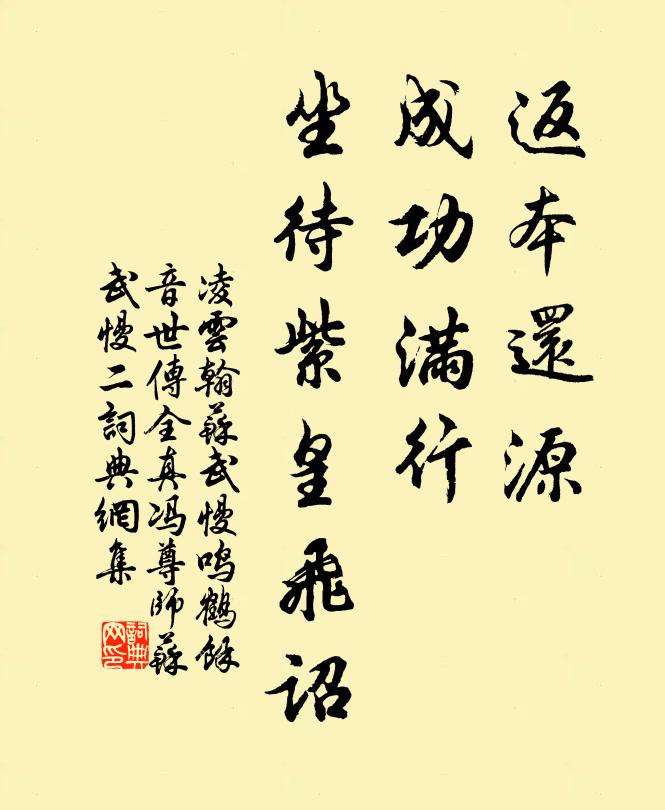 返本還源
成功滿行
坐待紫皇飛詔
凌雲翰蘇武慢鳴鶴餘
音世傳全真冯尊師蘇
武慢二詞典網集
詞典
网印